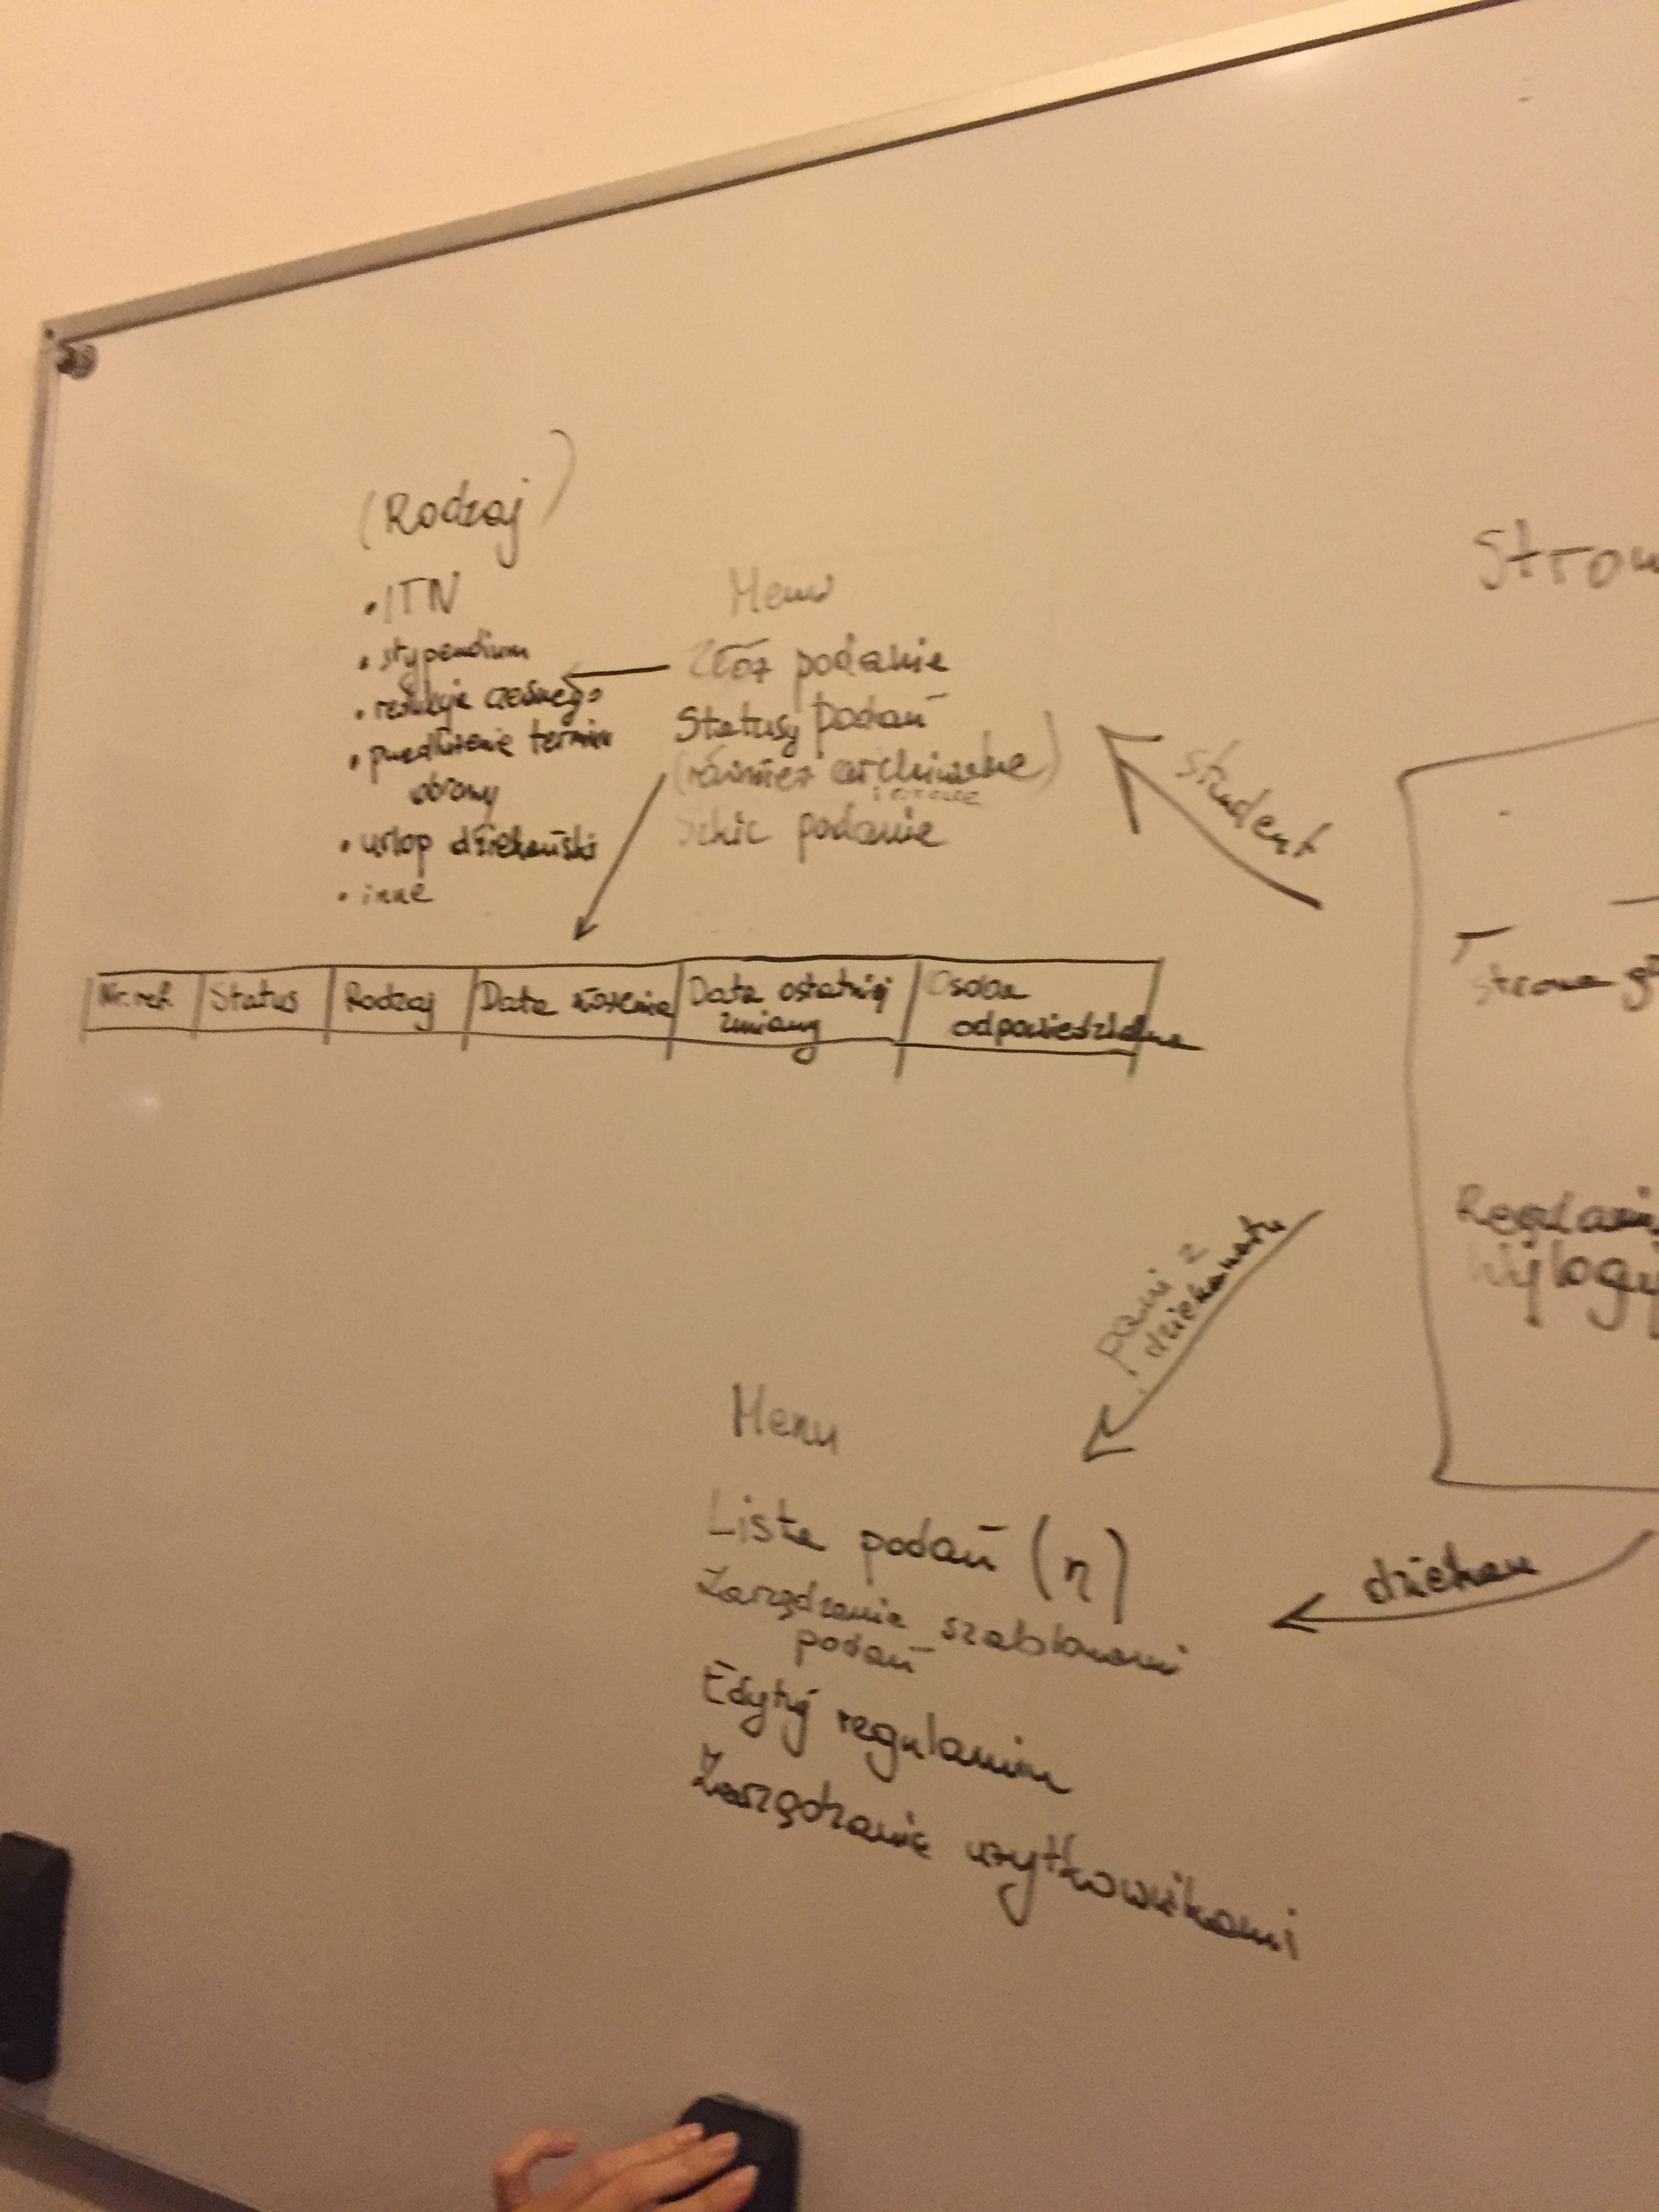 (Rodzaj)
• ITN
• stypendium
• redukcja czesnego
• przedłużenie termin
obrony
• urlop dziekański
• inne
Menu
Złóż podanie
Statusy podań
(również archiwalne)
Szkic podanie
student
Nr. ref.
Status
Rodzaj
Data złożenia
Data ostatniej
zmiany
Osoba
odpowiedzialna
pani z
dziekanatu
Menu
Lista podań (n)
Zarządzanie szablonami
podań
Edytuj regulamin
Zarządzanie użytkownikami
dziekan
Stron
strona gł
Regulamin
Wyloguj